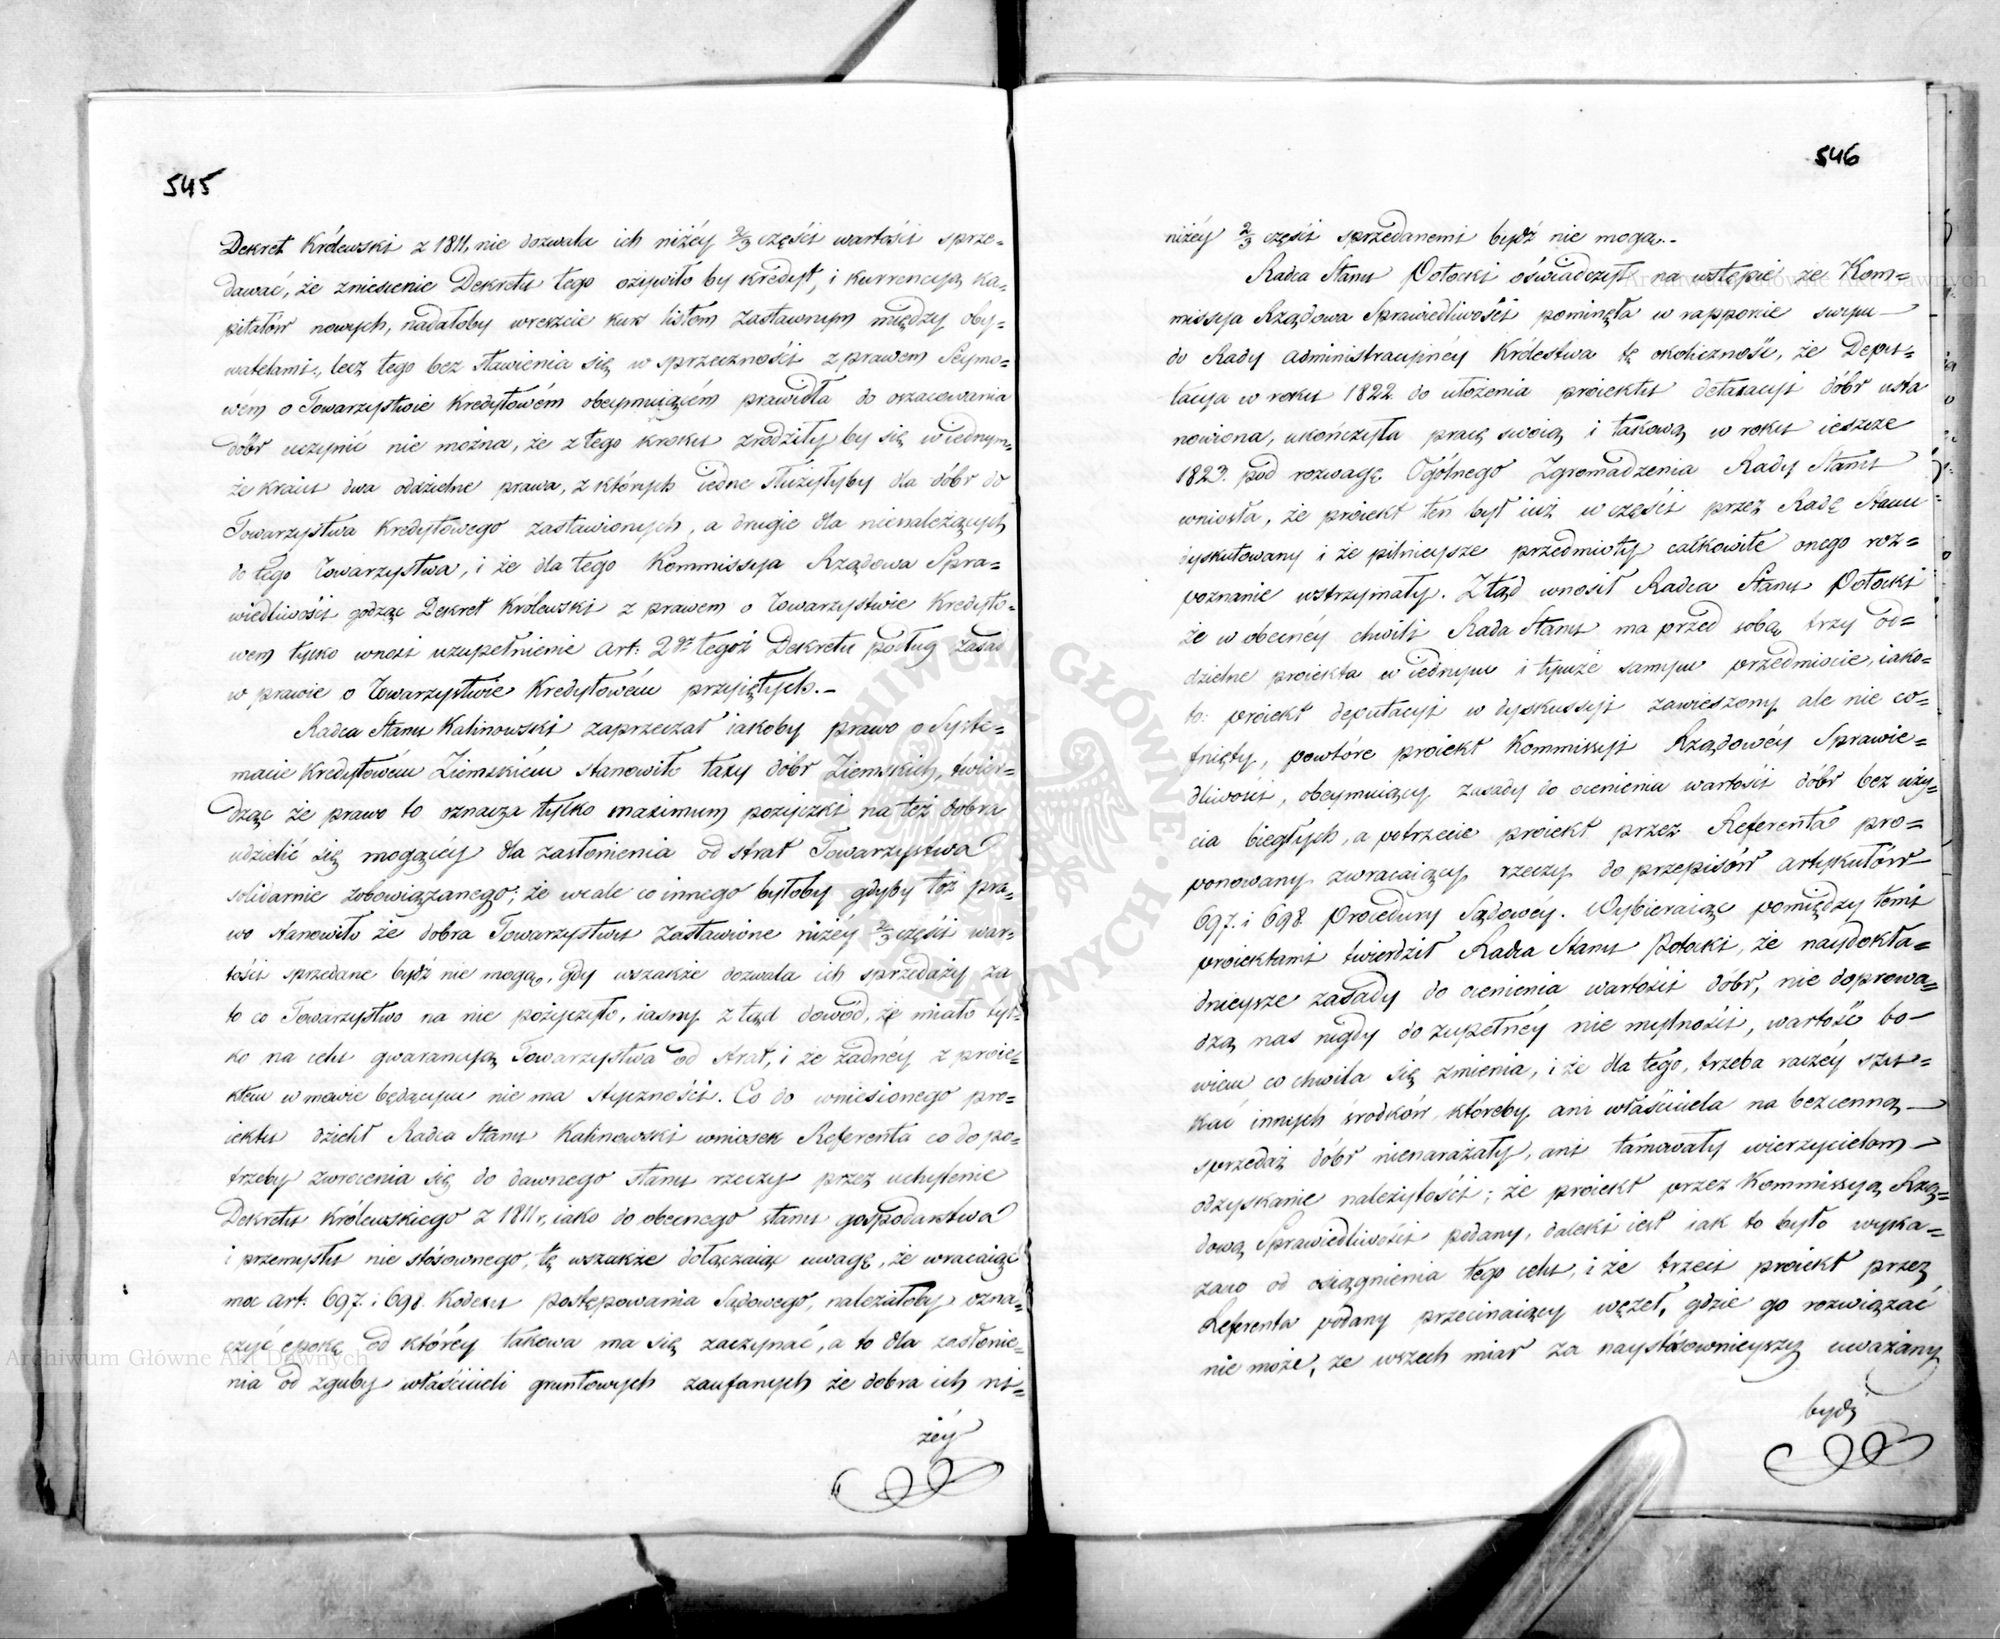 545
Dekret Królewski z 1811, nie dozwala ich niżéy 2/3 części wartości sprze=
dawać, że zniesienie Dekretu tego ożywiło by kredyt, i kurrencyją ka=
pitałów nowych, nadałoby wreszcie kurs listom zastawnym między oby=
watelami, lecz tego bez stawienia się w sprzeczności z prawem Seymo=
wém o Towarzystwie Kredytowém obeymuiącém prawidła do oszacowania
dóbr uczynić nie można, że z tego kroku zrodziły by się w iednym=
że kraiu dwa oddzielne prawa, z których iedne służyłyby dla dóbr do
Towarzystwa Kredytowego zastawionych, a drugie dla nienależących
do tego Towarzystwa, i że dla tego Kommissya Rządowa Spra=
wiedliwości godząc Dekret Królewski z prawem o Towarzystwie Kredyto=
wem tylko wnosi uzupełnienie art: 2go tegóż Dekretu podług zasad
w prawie o Towarzystwie Kredytowém przyiętych.–
Radca Stanu Kalinowski zaprzeczał iakoby prawo o Syste=
macie Kredytowém Ziemskiém stanowiło taxy dóbr Ziemskich, twier=
dząc że prawo to oznacza tylko maximum pożyczki na też dobra
udzielić się mogącéy dla zasłonienia od strat Towarzystwa
solidarnie zobowiązanego; że wcale co innego byłoby gdyby toż pra=
wo stanowiło że dobra Towarzystwu zastawione niżéy 2/3 części war=
tości sprzedane bydź nie mogą, gdy wszakże dozwala ich sprzedaży za
to co Towarzystwo na nie pożyczyło, iasny z tąd dowód, że miało tyl=
ko na celu gwarancyją Towarzystwa od strat, i że żadnéy z proiek
ktem w mowie będącym nie ma styczności. Co do wniesionego pro=
iektu dzielił Radca Stanu Kalinowski wniosek Referenta co do po=
trzeby zwrócenia się do dawnego stanu rzeczy przez uchylenie
Dekretu Królewskiego z 1811 r, iako do obecnego stanu gospodarstwa
i przemysłu nie stósownego, tę wszakże dołączaiąc uwagę, że wracaiąc
moc art: 697. i 698. Kodexu postępowania Sądowego, należałoby ozna=
czyć epokę od któréy takowa ma się zaczynać, a to dla zasłonie=
nia od zguby właścicieli gruntowych zaufanych że dobra ich ni=
żéy
546
niżéy 2/3 części sprzedanemi bydź nie mogą.–
Radca Stanu Potocki oświadczył na wstępie że Kom=
missya Rządowa Sprawiedliwości pominęła w rapporcie swym
do Rady Administracyinéy Królestwa tę okoliczność, że Depu=
tacya w roku 1822 do ułożenia proiektu detaxacyi dóbr usta
nowiona, ukończyła pracę swoią i takową w roku ieszcze
1823. pod rozwagę Ogólnego Zgromadzenia Rady Stanu
wniosła, że proiekt ten był iuż w części przez Radę Stanu
dyskutowany i że pilnieysze przedmioty całkowite onego roz=
poznanie wstrzymały. Ztąd wnosił Radca Stanu Potocki
że w obecnéy chwili Rada Stanu ma przed sobą trzy od=
dzielne proiekta w iednym i tymże samym przedmiocie, iako=
to: proiekt deputacyi w dyskussyi zawieszony ale nie co=
fnięty, powtóre proiekt Kommissyi Rządowéy Sprawie=
dliwości, obeymuiący zasady do ocienienia wartości dóbr bez uży=
cia biegłych, a potrzecie proiekt przez Referenta pro=
ponowany zwracaiący rzeczy do przepisów artykułów
697. i 698. Procedury Sądowéy. Wybieraiąc pomiędzy temi
proiektami twierdził Radca Stanu Potocki, że naydokła=
dnieysze zasady do ocienienia wartości dóbr, nie doprowa=
dzą nas nigdy do zupełnéy nie mylności, wartość bo–
wiem co chwila się zmienia, i że dla tego, trzeba raczéy szu=
kać innych środków, któreby ani właściciela na bezcenną–
sprzedaż dóbr nienarażały, ani tamowały wierzycielom–
odzyskanie należytości; że proiekt przez Kommissyą Rzą=
dową Sprawiedliwości podany, daleki iest iak to było wyka=
zano od osiągnienia tego celu, i że trzeci proiekt przez
Referenta podany przecinaiący węzeł, gdzie go rozwiązać
nie może, ze wszech miar za naystósownieyszy uważany
bydź